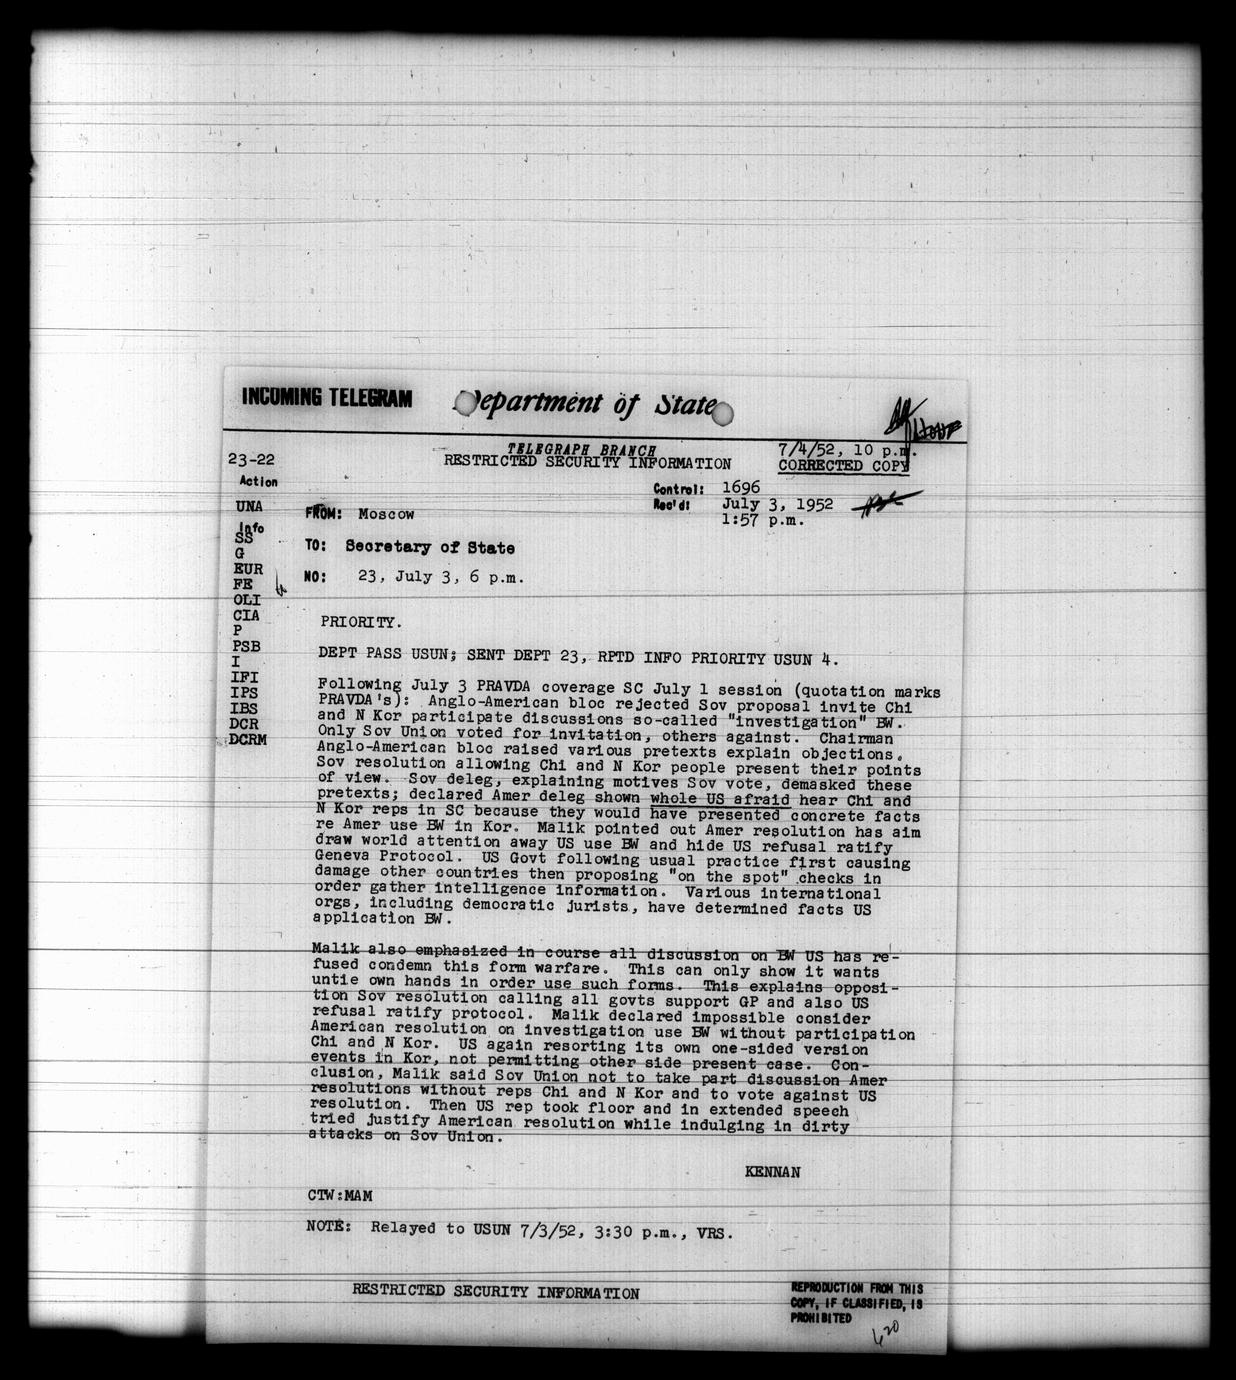 INCOMING TELEGRAM
Department of State
TELEGRAPH BRANCH
RESTRICTED SECURITY INFORMATION
7/4/52, 10 p.m.
CORRECTED COPY
23-22
Action
Control: 1696
Rec'd: July 3, 1952
1:57 p.m.
UNA
Info
SS
G
EUR
FE
OLI
CIA
P
PSB
I
IFI
IPS
IBS
DCR
DCRM
FROM: Moscow
TO: Secretary of State
NO: 23, July 3, 6 p.m.
PRIORITY.
DEPT PASS USUN; SENT DEPT 23, RPTD INFO PRIORITY USUN 4.
Following July 3 PRAVDA coverage SC July 1 session (quotation marks
PRAVDA's): Anglo-American bloc rejected Sov proposal invite Chi
and N Kor participate discussions so-called "investigation" BW.
Only Sov Union voted for invitation, others against. Chairman
Anglo-American bloc raised various pretexts explain objections.
Sov resolution allowing Chi and N Kor people present their points
of view. Sov deleg, explaining motives Sov vote, demasked these
pretexts; declared Amer deleg shown whole US afraid hear Chi and
N Kor reps in SC because they would have presented concrete facts
re Amer use BW in Kor. Malik pointed out Amer resolution has aim
draw world attention away US use BW and hide US refusal ratify
Geneva Protocol. US Govt following usual practice first causing
damage other countries then proposing "on the spot" checks in
order gather intelligence information. Various international
orgs, including democratic jurists, have determined facts US
application BW.
Malik also emphasized in course all discussion on BW US has re-
fused condemn this form warfare. This can only show it wants
untie own hands in order use such forms. This explains opposi-
tion Sov resolution calling all govts support GP and also US
refusal ratify protocol. Malik declared impossible consider
American resolution on investigation use BW without participation
Chi and N Kor. US again resorting its own one-sided version
events in Kor, not permitting other side present case. Con-
clusion, Malik said Sov Union not to take part discussion Amer
resolutions without reps Chi and N Kor and to vote against US
resolution. Then US rep took floor and in extended speech
tried justify American resolution while indulging in dirty
attacks on Sov Union.
KENNAN
CTW:MAM
NOTE: Relayed to USUN 7/3/52, 3:30 p.m., VRS.
RESTRICTED SECURITY INFORMATION
REPRODUCTION FROM THIS
COPY, IF CLASSIFIED, IS
PROHIBITED